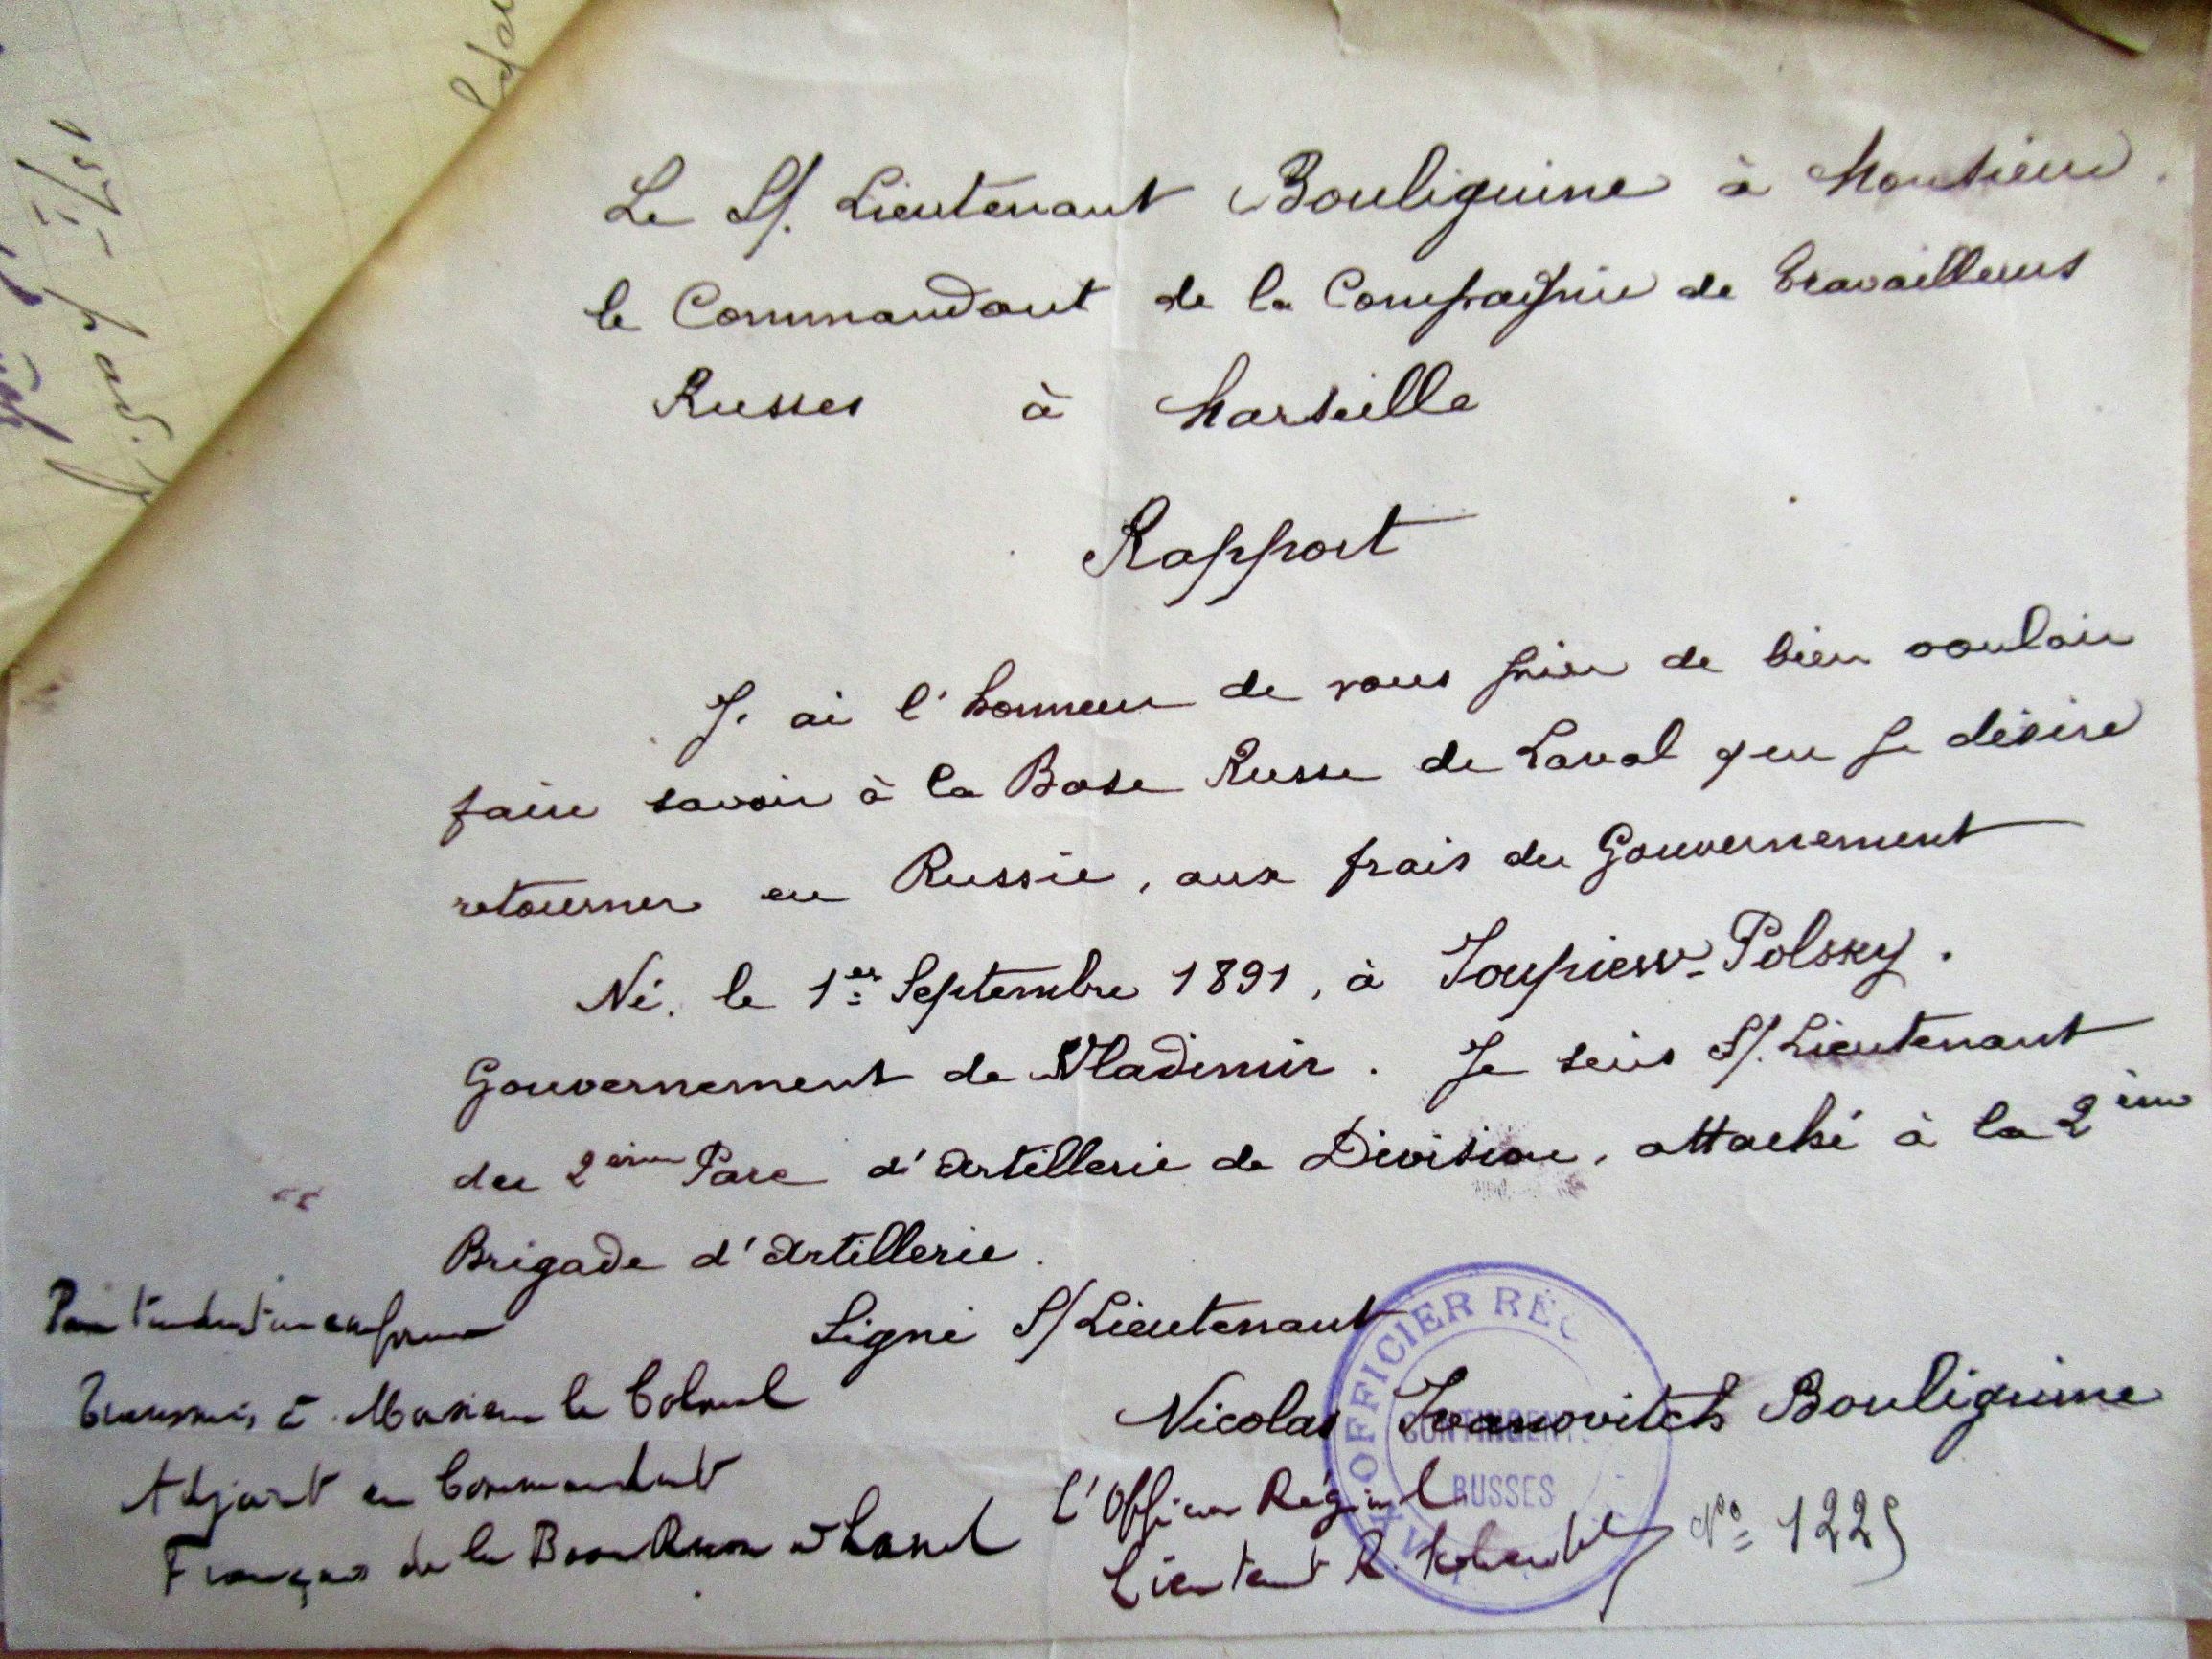 Le S/. Lieutenant Bouliguine à Monsieur
le Commandant de la Compagnie de travailleurs
Russes à Marseille
Rapport
J. ai l'honneur de vous prier de bien vouloir
faire savoir à la Base Russe de Laval que je désire
retourner en Russie, aux frais du Gouvernement
Né. le 1er Septembre 1891, à Ioupiew-Polsky.
Gouvernement de Vladimir. Je suis S/. Lieutenant
du 2ème Parc d'Artillerie de Division, attaché à la 2ème
Brigade d'Artillerie.
Signé S/Lieutenant
Nicolas Ivanovitch Bouliguine
Pour traduction conforme
Transmis à Monsieur le Colonel
Adjoint au Commandant
Français de la Base Russe à Laval
L'Officier Régional
Lieutenant R.
No 1225
OFFICIER RÉG
CONTINGENT
RUSSES